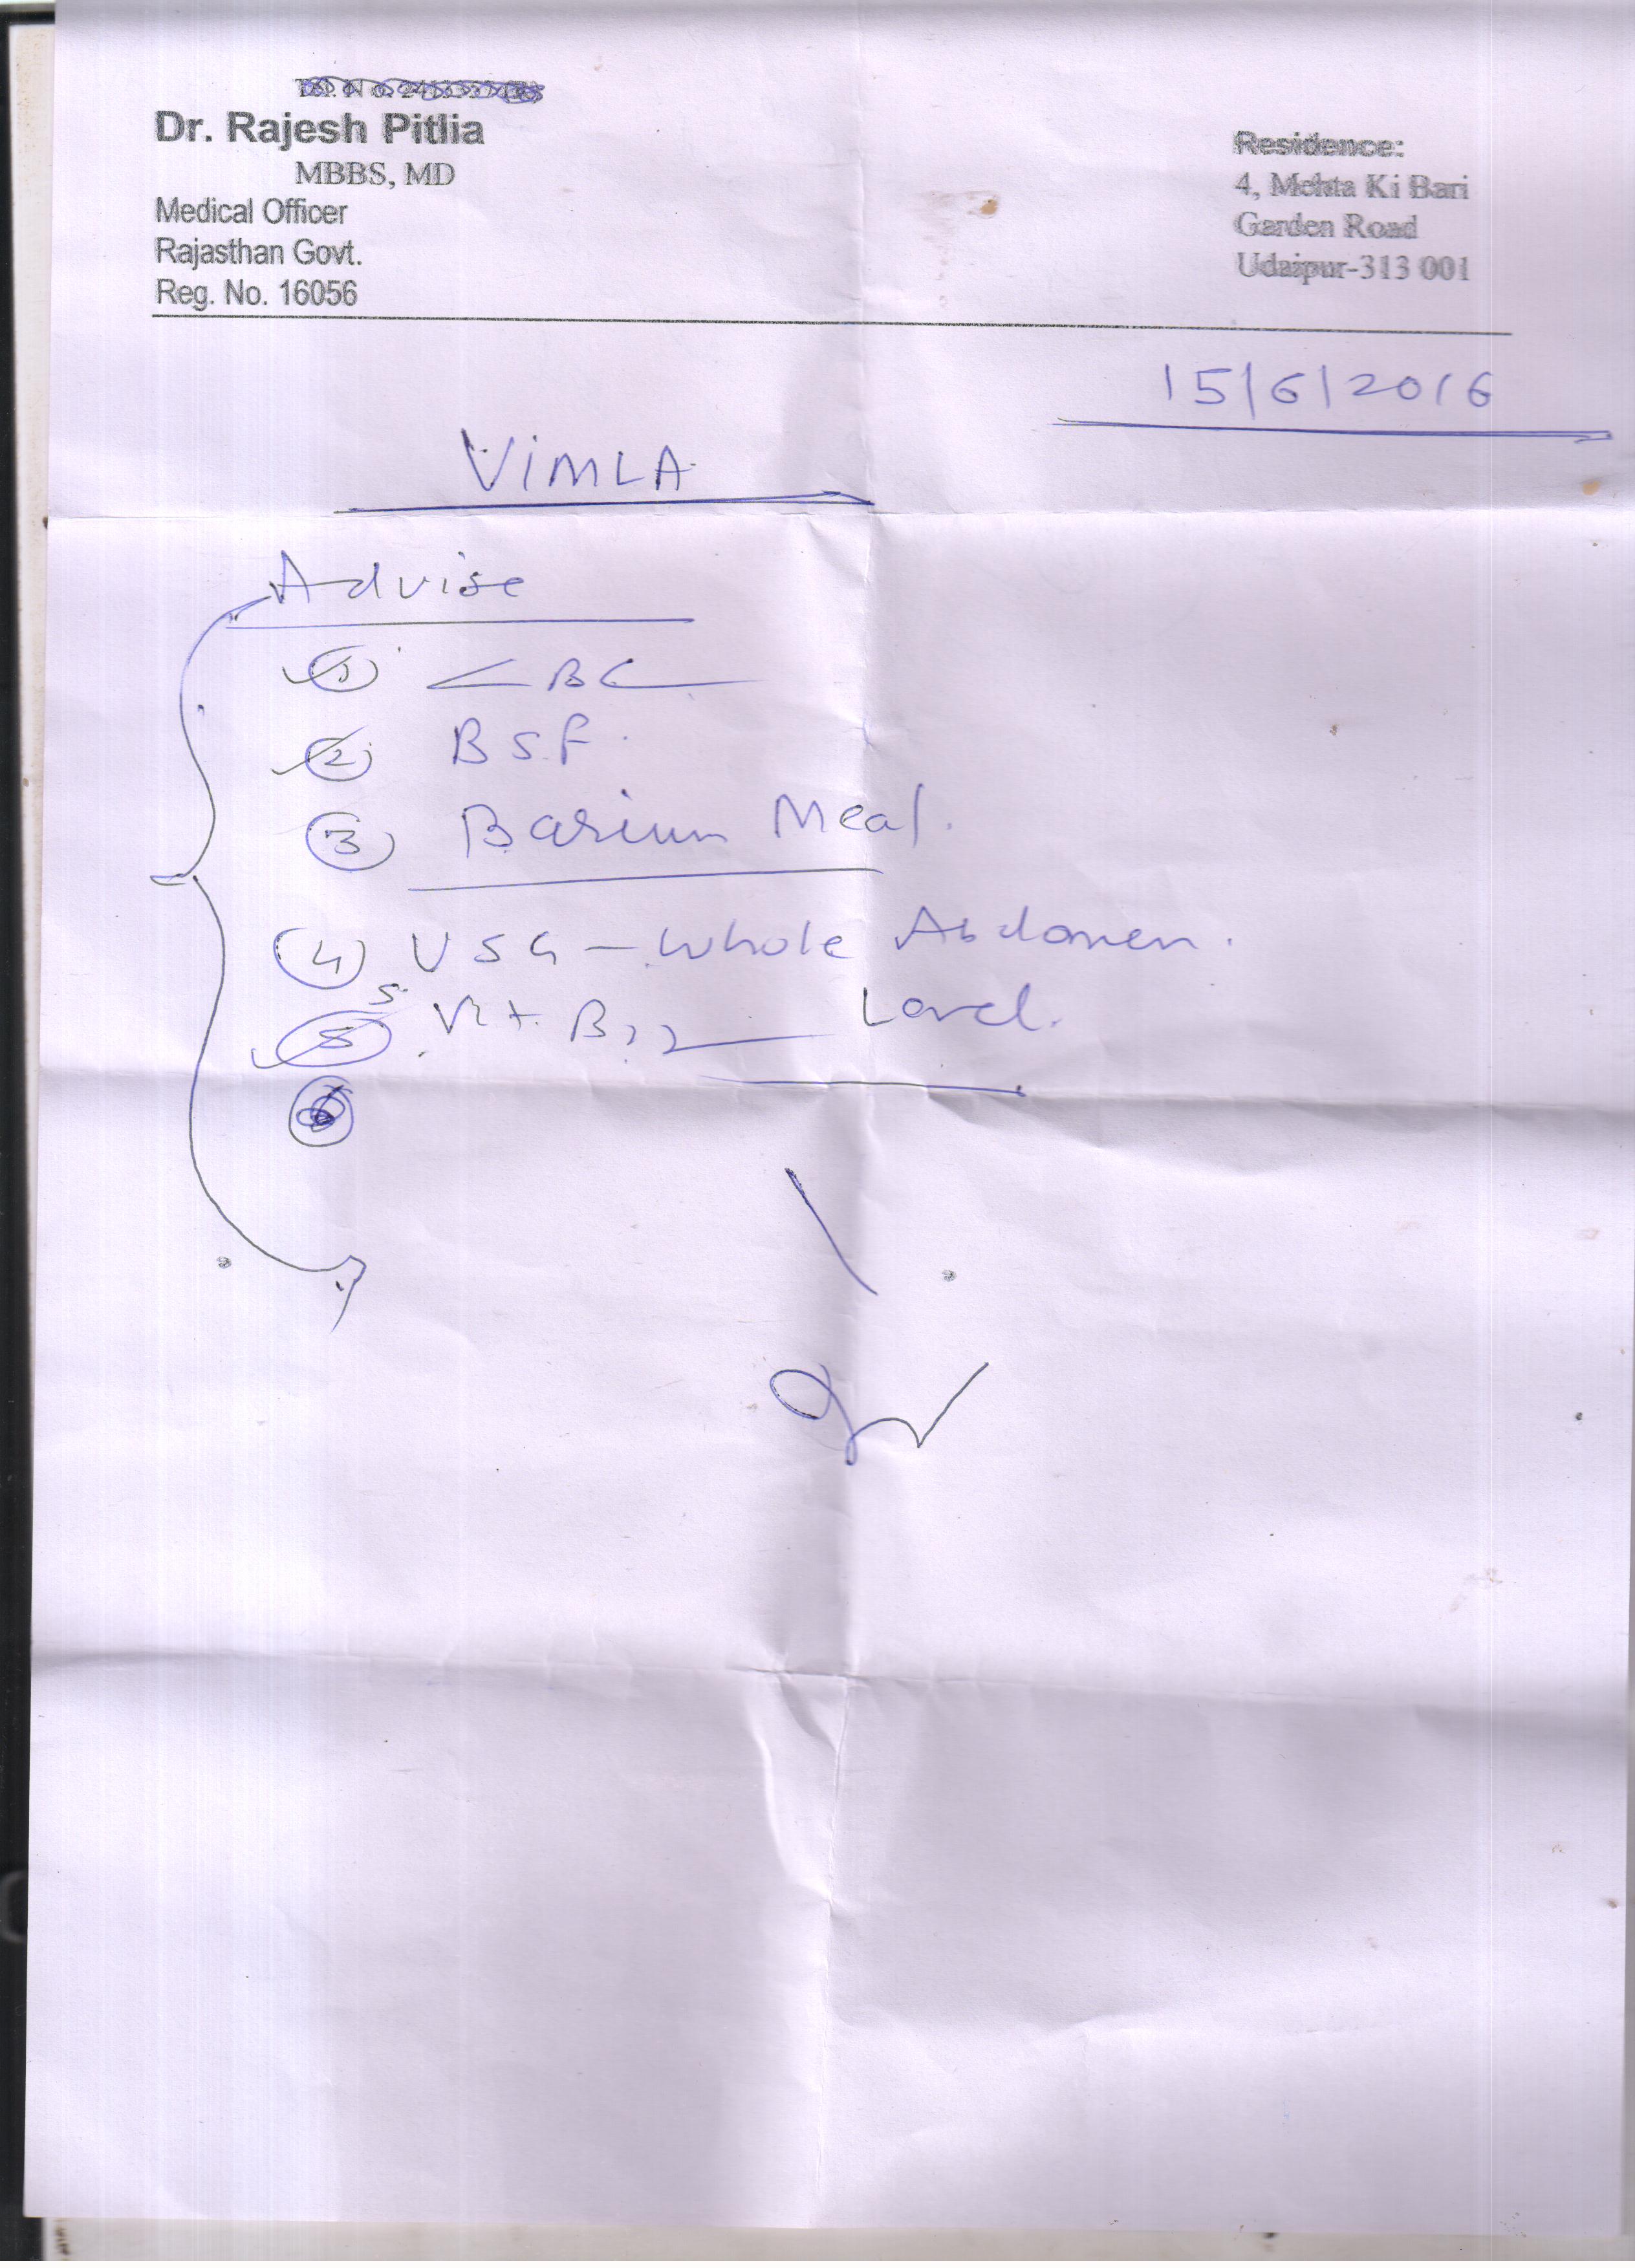 Dr. Rajesh Pitlia
MBBS, MD
Medical Officer
Rajasthan Govt.
Reg. No. 16056
Residence:
4, Mehta Ki Bari
Garden Road
Udaipur-313 001
15/6/2016
ViMLA
Advise
1 CBC
2 BSF.
3 Barium Meal.
4 USG - Whole Abdomen.
5 S. Vit. B12 Level.